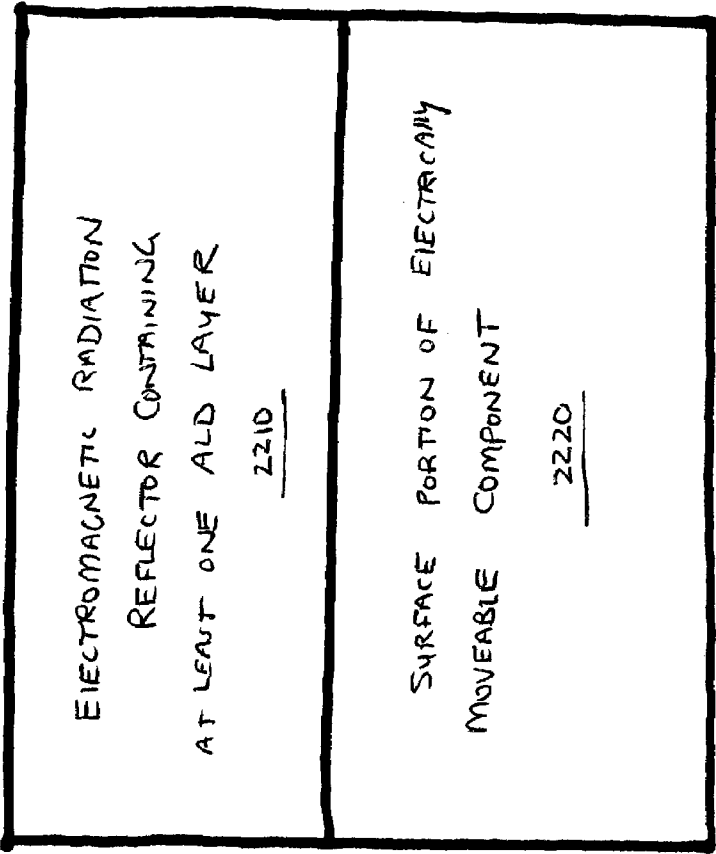 ElECTROMAGNETIC RADIATION
REFLECTOR CONTAINING
AT LEAST ONE ALD LAYER
2210
SURFACE PORTION OF ElECTRICAlly
MOVEABlE COMPONENT
2220